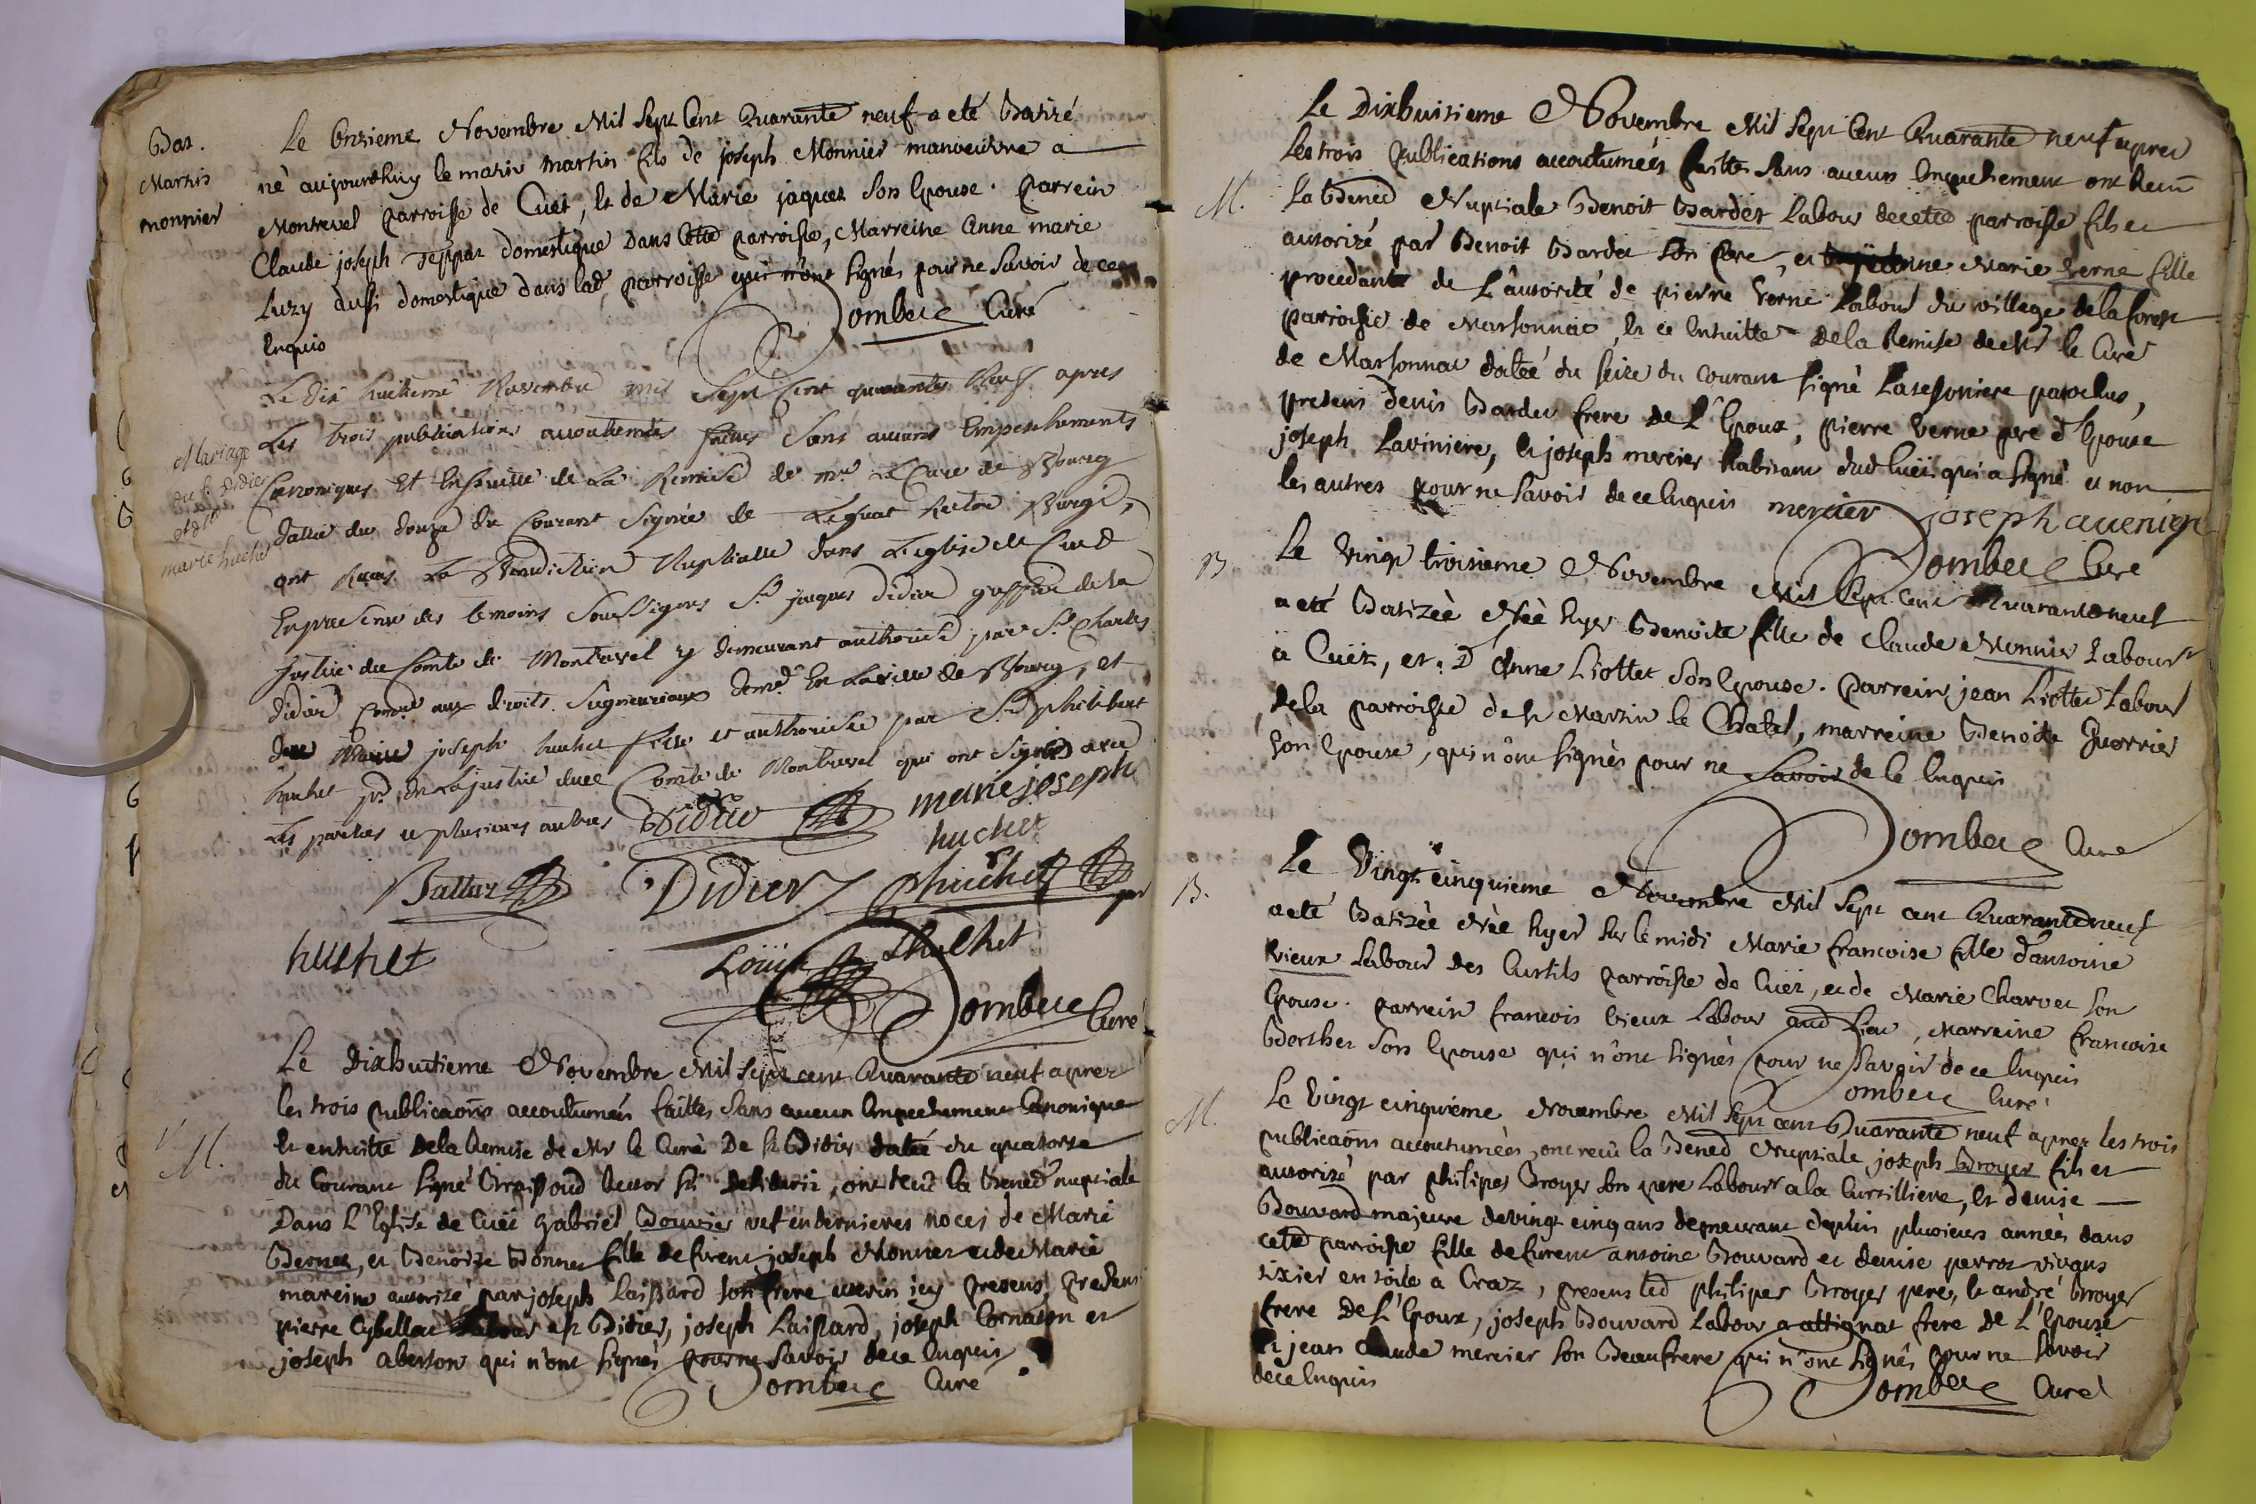 Bat.
Martin
monnier
Le Onzieme Novembre Mil Sept Cent Quarante neuf a eté Batizé
né aujourdhuy le matin martin fils de joseph Monnier manoeuvre a
Montrevel parroisse de Cuet, et de Marie jaquet Son Epouse. parrein
Claude joseph domestique dans cette parroisse, Marreine Anne marie
Luzy aussi domestique dans lad. parroisse qui n'ont signés pour ne Savoir de ce
Enquis
Dombec Curé
Mariage
du Sr Didier
et dlle
marie huchet
Le dix huitieme Novembre mil Sept Cent quarante Neuf apres
Les trois publications accoutumées faites Sans aucuns Empeschements
Canoniques Et Ensuitte de La Remise de mr Le Cure de Bourg
dattée du douze du Courant Signée de Rector Burgi,
ont Receu La Benediction Nuptialle dans L'eglise de Cuet
En presence des temoins Soussignes Sr jaques didier greffier de la
justice du Comté de Montrevel y demeurant authorisé par Sr Charles
didier aux droits Seigneuriaux demt En La ville de Bourg, et
dlle Marie joseph huchet fille et authorisée par Sr philibert
huchet de La justice dud Comté de Montrevel qui ont Signés avec
Les parties et plusieurs autres
Didier marie joseph
huchet
Didier huchet
huchet Louise huchet
Dombec Curé
M.
Le Dixhuitieme Novembre Mil Sept cent Quarante neuf aprez
les trois publicaons accoutumées faittes Sans aucun Empechement Canonique
et ensuitte de la Remise de Mr le Curé De St Didier datée du quatorze
du Courant Signé , ont reçu la Bened nuptiale
Dans L'Eglise de Cuet gabriel Bouvier vef en dernieres noces de Marie
Bernet, et Benoite Monnier fille de furent joseph Monnier et de Marie
mareine autorizé par joseph Laissard son frere uterin icy present, presens
pierre St Didier, joseph Laissard, joseph Cornaton et
joseph aberton qui n'ont Signés pour ne Savoir de ce Enquis
Dombec Curé
M.
Le Dixhuitieme Novembre Mil Sept Cent Quarante neuf aprez
Les trois publications accoutumées faittes Sans aucun Empechement ont Receu
La Bened Nuptiale Benoit Bardet Labour de cette parroisse fils et
autorizé par Benoit Bardet Son Pere, et Marie Verne fille
procedante de L'autorité de pierre Verne Labour du village de la forest
parroisse de Marsonnat, et ce Ensuitte de la Remise de Mr le Curé
de Marsonnat datée du Seize du Courant Signé Lateyssoniere parochus,
presens Denis Bardet frere de L'Epoux, pierre Verne pere d'Epouse
joseph Laviniere, et joseph mercier habitant dud Cuet qui a Signé et non
les autres pour ne Savoir de ce Enquis mercier joseph avenier
Dombec Curé
B.
Le Vingt troisieme Novembre Mil Sept cent Quaranteneuf
a eté Batizée Née hyer Benoite fille de Claude Monnier Labourr
a Cuet, et. D'Anne Liottet Son Epouse. parrein jean Liottet Labour
de la parroisse de St Martin le Chatel, marreine Benoite Guerrier
Son Epouse, qui n'ont Signés pour ne Savoir de ce Enquis
Dombec Curé
B.
Le Vingt cinquieme Novembre Mil Sept cent Quaranteneuf
a eté Batizée Née hyer Sur le midi Marie francoise fille d'antoine
Vieux Labour des Curtils parroisse de Cuet, et de Marie Charvet Son
Epouse. parrein francois Vieux Labour aud Lieu, Marreine francoise
Berthet Son Epouse qui n'ont Signés pour ne Savoir de ce Enquis
Dombec Curé
M.
Le Vingt cinquieme Novembre Mil Sept cent Quarante neuf aprez les trois
publicaons accoutumées, ont reçu la Bened Nuptiale joseph Broyer fils et
autorizé par philipes Broyer son pere Labourr a la Curtilliere, et denise
Bouvard majeure de vingt cinq ans demeurant depuis plusieurs années dans
cette parroisse fille de furent antoine Bouvard et denise perroz vivans
tixier en toile a Craz, presens led philipes Broyer pere, et andré Broyer
frere De L'Epoux, joseph Bouvard Labour a attignat frere De L'Epouse
et jean Claude mercier Son Beaufrere qui n'ont Signés pour ne Savoir
de ce Enquis
Dombec Curé